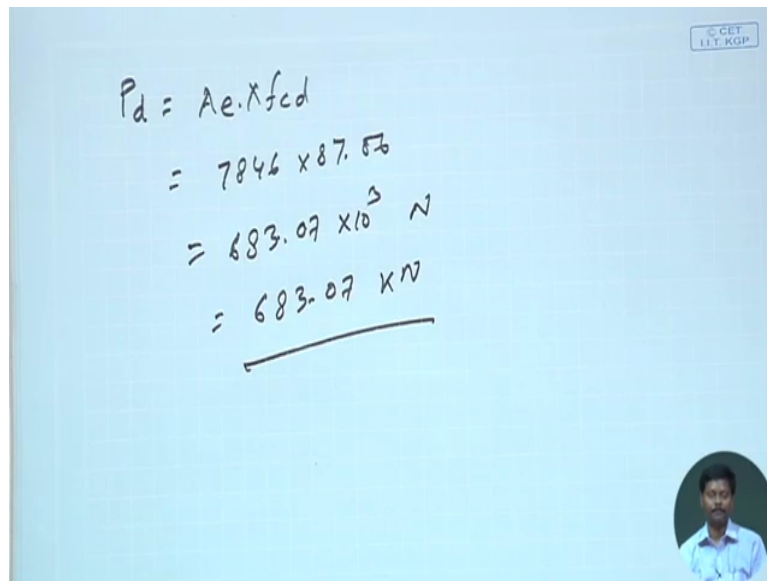 © CET
I.I.T. KGP
Pd = Ae. x fcd
= 7846 x 87.06
= 683.07 x 10³ N
= 683.07 KN